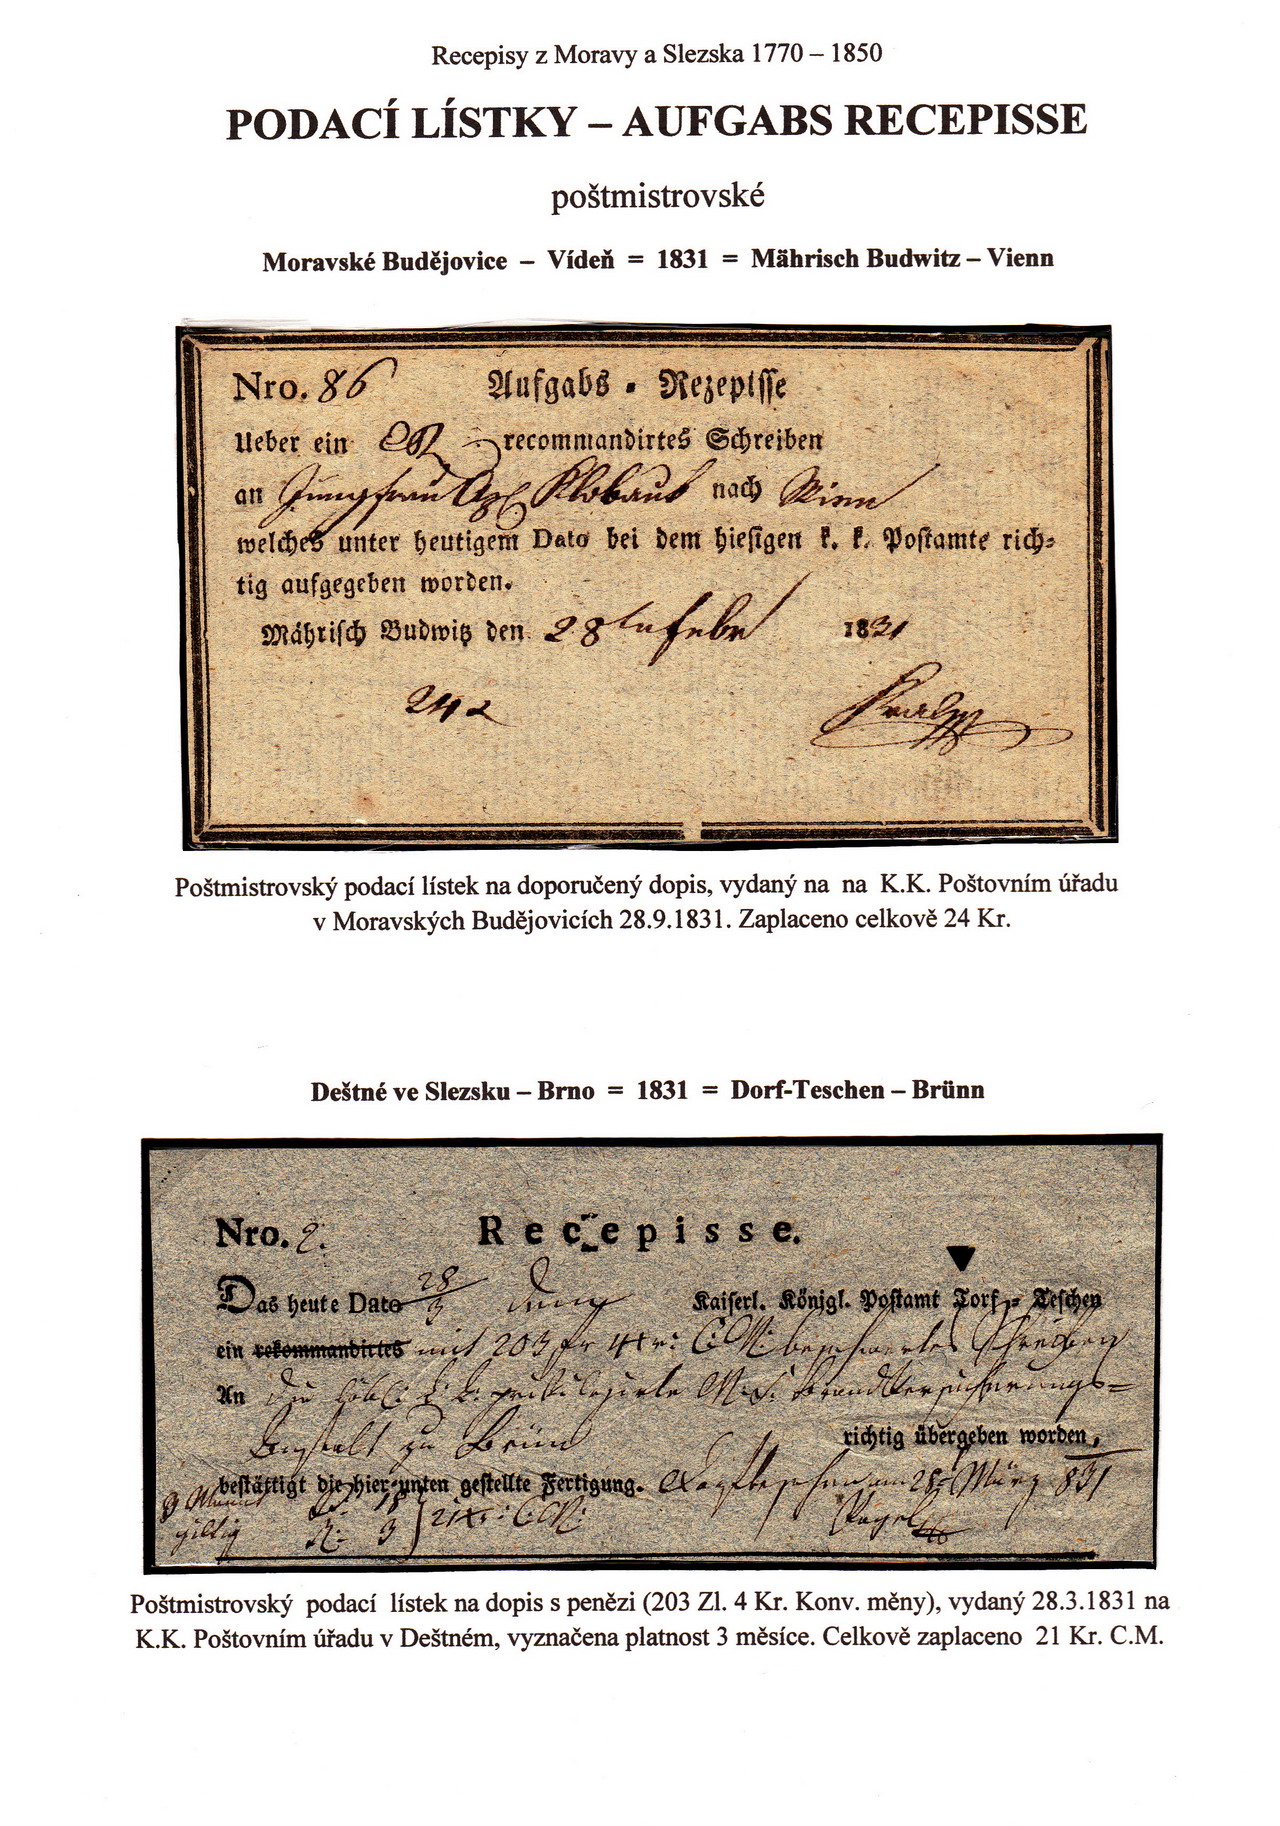 Recepisy z Moravy a Slezska 1770 – 1850
PODACÍ LÍSTKY – AUFGABS RECEPISSE
poštmistrovské
Moravské Budějovice – Vídeň = 1831 = Mährisch Budwitz – Vienn
Nro. 86 Aufgabs - Rezepisse
Ueber ein recommandirtes Schreiben
an Jungfrau Klobaus nach Wien
welches unter heutigem Dato bei dem hiesigen k. k. Postamte rich-
tig aufgegeben worden.
Mährisch Budwitz den 28ten Febr 1831
24 x
Poštmistrovský podací lístek na doporučený dopis, vydaný na na K.K. Poštovním úřadu
v Moravských Budějovicích 28.9.1831. Zaplaceno celkově 24 Kr.
Deštné ve Slezsku – Brno = 1831 = Dorf-Teschen – Brünn
Nro. 2. Recepisse.
Das heute Dato 28/3 dem Kaiserl. Königl. Postamt Dorf-Teschen
ein rekommandirtes mit 203 fr 4 xr: C:M: beschwertes Schreiben
An die löbl: k. k. privilegirte M: S: Brandversicherungs=
Anstalt zu Brünn richtig übergeben worden,
bestättigt die hier unten gestellte Fertigung. Dorfteschen am 28 März 831
3 Monat 18 21 xr: C:M: Vogel
giltig R: 3
Poštmistrovský podací lístek na dopis s penězi (203 Zl. 4 Kr. Konv. měny), vydaný 28.3.1831 na
K.K. Poštovním úřadu v Deštném, vyznačena platnost 3 měsíce. Celkově zaplaceno 21 Kr. C.M.